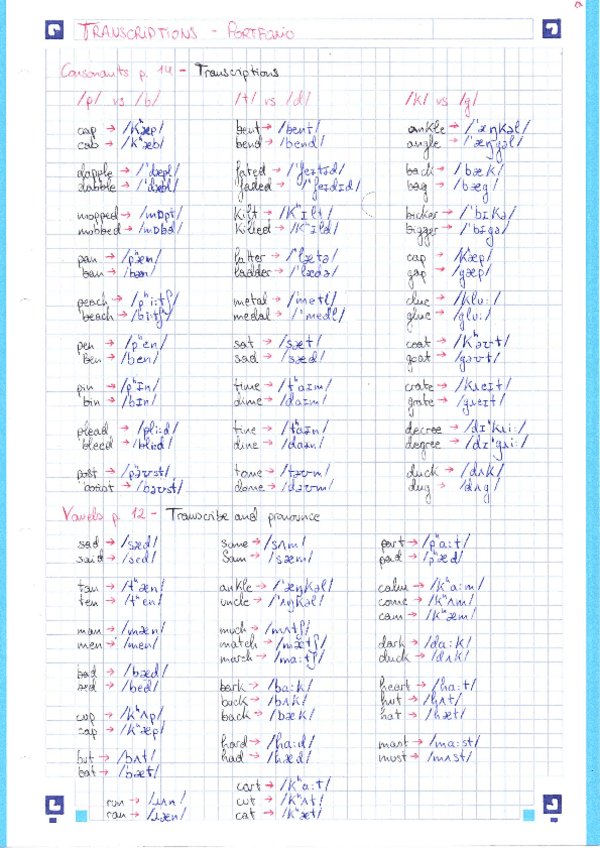 TRANSCRIPTIONS - PORTFOLIO
Consonants p. 14 - Transcriptions
/p/ vs /b/
cap → /kʰæp/
cab → /kʰæb/
dapple → /ˈdæpl/
dabble → /ˈdæbl/
mopped → /mɒpt/
mobbed → /mɒbd/
pan → /pʰæn/
ban → /bæn/
peach → /pʰi:tʃ/
beach → /bi:tʃ/
pen → /pʰen/
ben → /ben/
pin → /pʰɪn/
bin → /bɪn/
plead → /pli:d/
bleed → /bli:d/
post → /pəʊst/
boast → /bəʊst/
/t/ vs /d/
bent → /bent/
bend → /bend/
fated → /ˈfeɪtɪd/
faded → /ˈfeɪdɪd/
kilt → /kʰɪlt/
killed → /kʰɪld/
latter → /ˈlætə/
ladder → /ˈlædə/
metal → /ˈmetl/
medal → /ˈmedl/
sat → /sæt/
sad → /sæd/
time → /tʰaɪm/
dime → /daɪm/
tine → /tʰaɪn/
dine → /daɪn/
tome → /təʊm/
dome → /dəʊm/
/k/ vs /g/
ankle → /ˈæŋkəl/
angle → /ˈæŋgəl/
back → /bæk/
bag → /bæg/
bicker → /ˈbɪkə/
bigger → /ˈbɪgə/
cap → /kʰæp/
gap → /gæp/
clue → /klu:/
glue → /glu:/
coat → /kʰəʊt/
goat → /gəʊt/
crate → /kɹeɪt/
grate → /gɹeɪt/
decree → /dɪˈkɹi:/
degree → /dɪˈgɹi:/
duck → /dʌk/
dug → /dʌg/
Vowels p. 12 - Transcribe and pronounce
sad → /sæd/
said → /sed/
tan → /tʰæn/
ten → /tʰen/
man → /mæn/
men → /men/
bad → /bæd/
bed → /bed/
cup → /kʰʌp/
cap → /kʰæp/
but → /bʌt/
bat → /bæt/
run → /ɹʌn/
ran → /ɹæn/
some → /sʌm/
Sam → /sæm/
ankle → /ˈæŋkəl/
uncle → /ˈʌŋkəl/
much → /mʌtʃ/
match → /mætʃ/
march → /ma:tʃ/
bark → /ba:k/
buck → /bʌk/
back → /bæk/
hard → /ha:d/
had → /hæd/
cart → /kʰa:t/
cut → /kʰʌt/
cat → /kʰæt/
part → /pʰa:t/
pad → /pʰæd/
calm → /kʰa:m/
come → /kʰʌm/
cam → /kʰæm/
dark → /da:k/
duck → /dʌk/
heart → /ha:t/
hut → /hʌt/
hat → /hæt/
mast → /ma:st/
must → /mʌst/